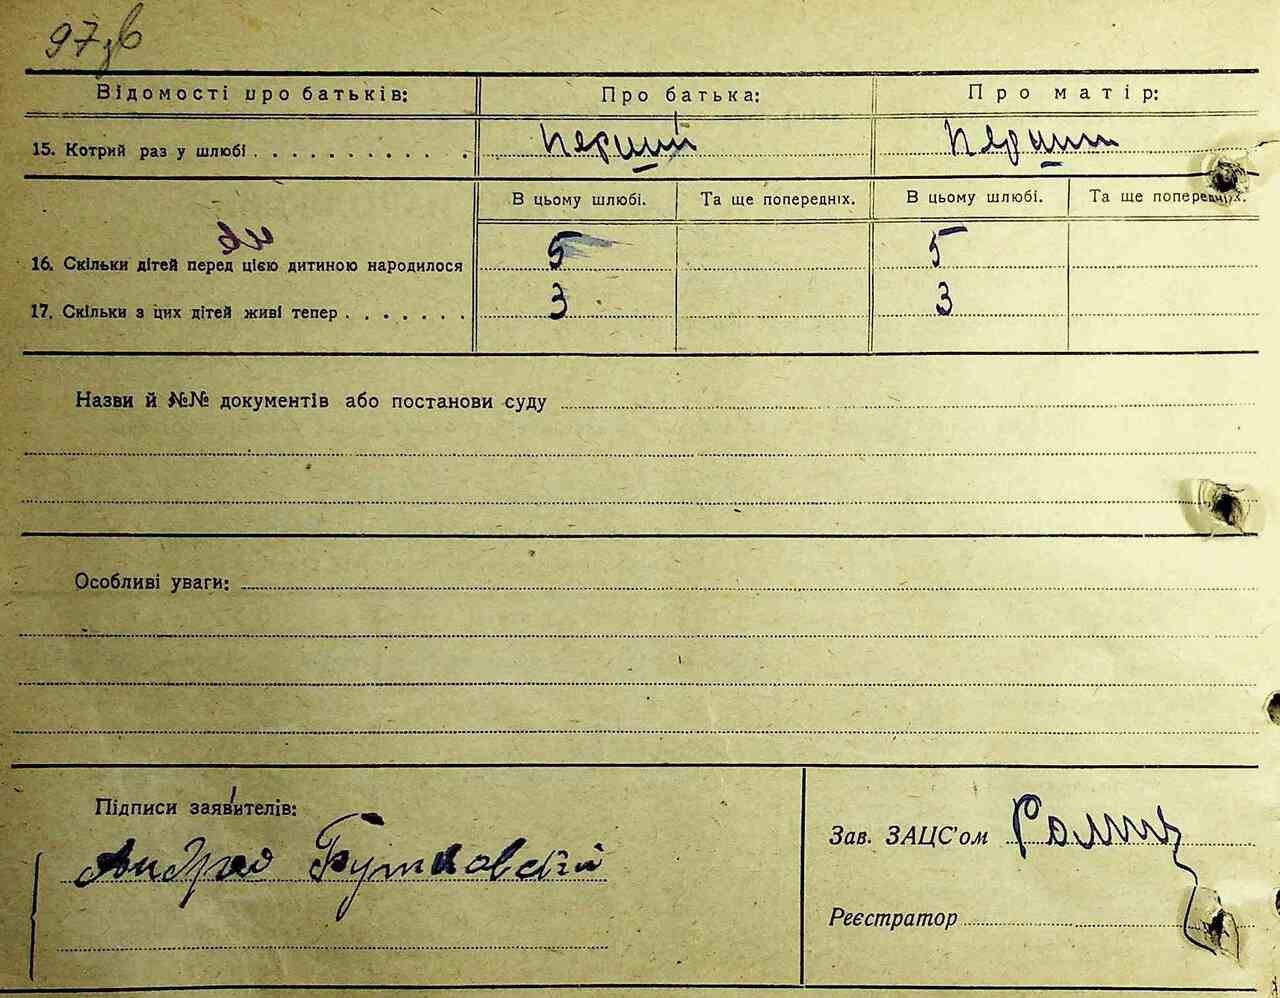 97зв
Відомості про батьків: Про батька: Про матір:
15. Котрий раз у шлюбі . . . . . . . . . . . перший перший
В цьому шлюбі. Та ще попередніх. В цьому шлюбі. Та ще попередніх.
16. Скільки дітей перед цією дитиною народилося 5 5
17. Скільки з цих дітей живі тепер . . . . . . . 3 3
Назви й №№ документів або постанови суду
Особливі уваги:
Підписи заявителів:
Зав. ЗАЦС'ом
Андрей Бутковский
Реєстратор